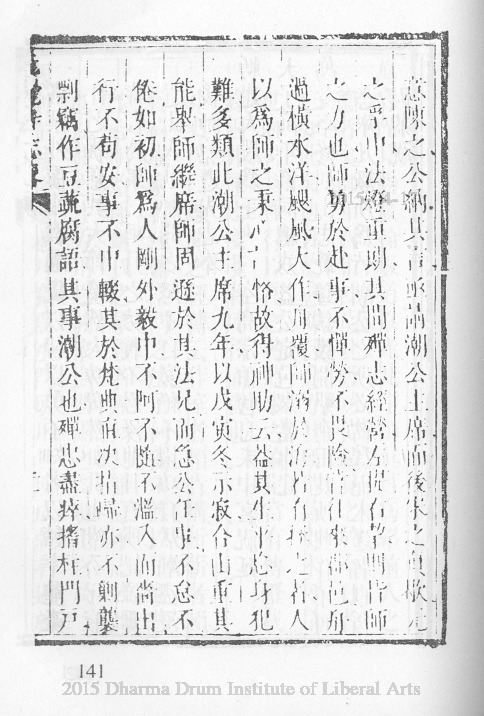 意陳之公納其言亟請潮公主席而後
之乎中法燈重朗其間殫志經營左提右挈則皆師
之力也師勇於赴事不憚勞不畏險嘗往來郡邑舟
過橫水洋颶風大作舟覆師溺於海若有掖之者人
以爲師之秉心古恪故得神助云蓋其生平忘身犯
難多類此潮公主席九年以戊寅冬示寂合山重其
能舉師繼席師固遜於其法兄而急公任事不怠不
倦如初師爲人剛外毅中不阿不隨不濫入而尚出
行不苟安事不中輟其於梵典直次指歸亦不剿襲
剽竊作豆蔬腐語其事潮公也殫忠盡瘁搘柱門戶
141
2015 Dharma Drum Institute of Liberal Arts